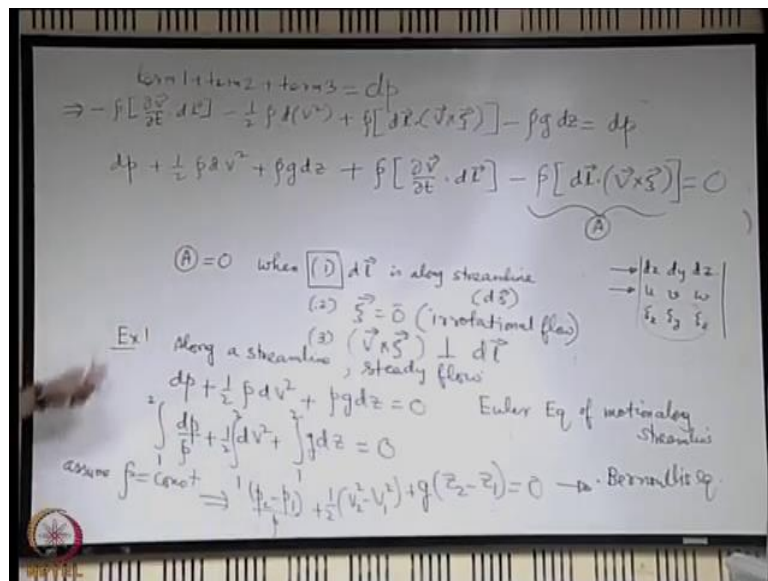 term1+term2+term3 = dp
⇒ -ρ[∂V⃗/∂t · dl⃗] - 1/2 ρ d(v²) + ρ[dl⃗·(V⃗×ξ⃗)] - ρg dz = dp
dp + 1/2 ρ dv² + ρg dz + ρ[∂V⃗/∂t · dl⃗] - ρ[dl⃗·(V⃗×ξ⃗)] = 0
Ⓐ
Ⓐ = 0 when (1) dl⃗ is along streamline
(ds⃗)
→ |dx dy dz|
→ |u v w|
|ξx ξy ξz|
(2) ξ⃗ = 0⃗ (irrotational flow)
(3) (V⃗×ξ⃗) ⊥ dl⃗
Ex 1 Along a streamline, steady flow
dp + 1/2 ρ dv² + ρg dz = 0 Euler Eq of motion along
streamline
∫₁² dp/ρ + 1/2 ∫₁² dv² + ∫₁² g dz = 0
assume ρ = const
⇒ (p₂-p₁)/ρ + 1/2 (V₂²-V₁²) + g(Z₂-Z₁) = 0 → Bernoullis Eq.
NPTEL